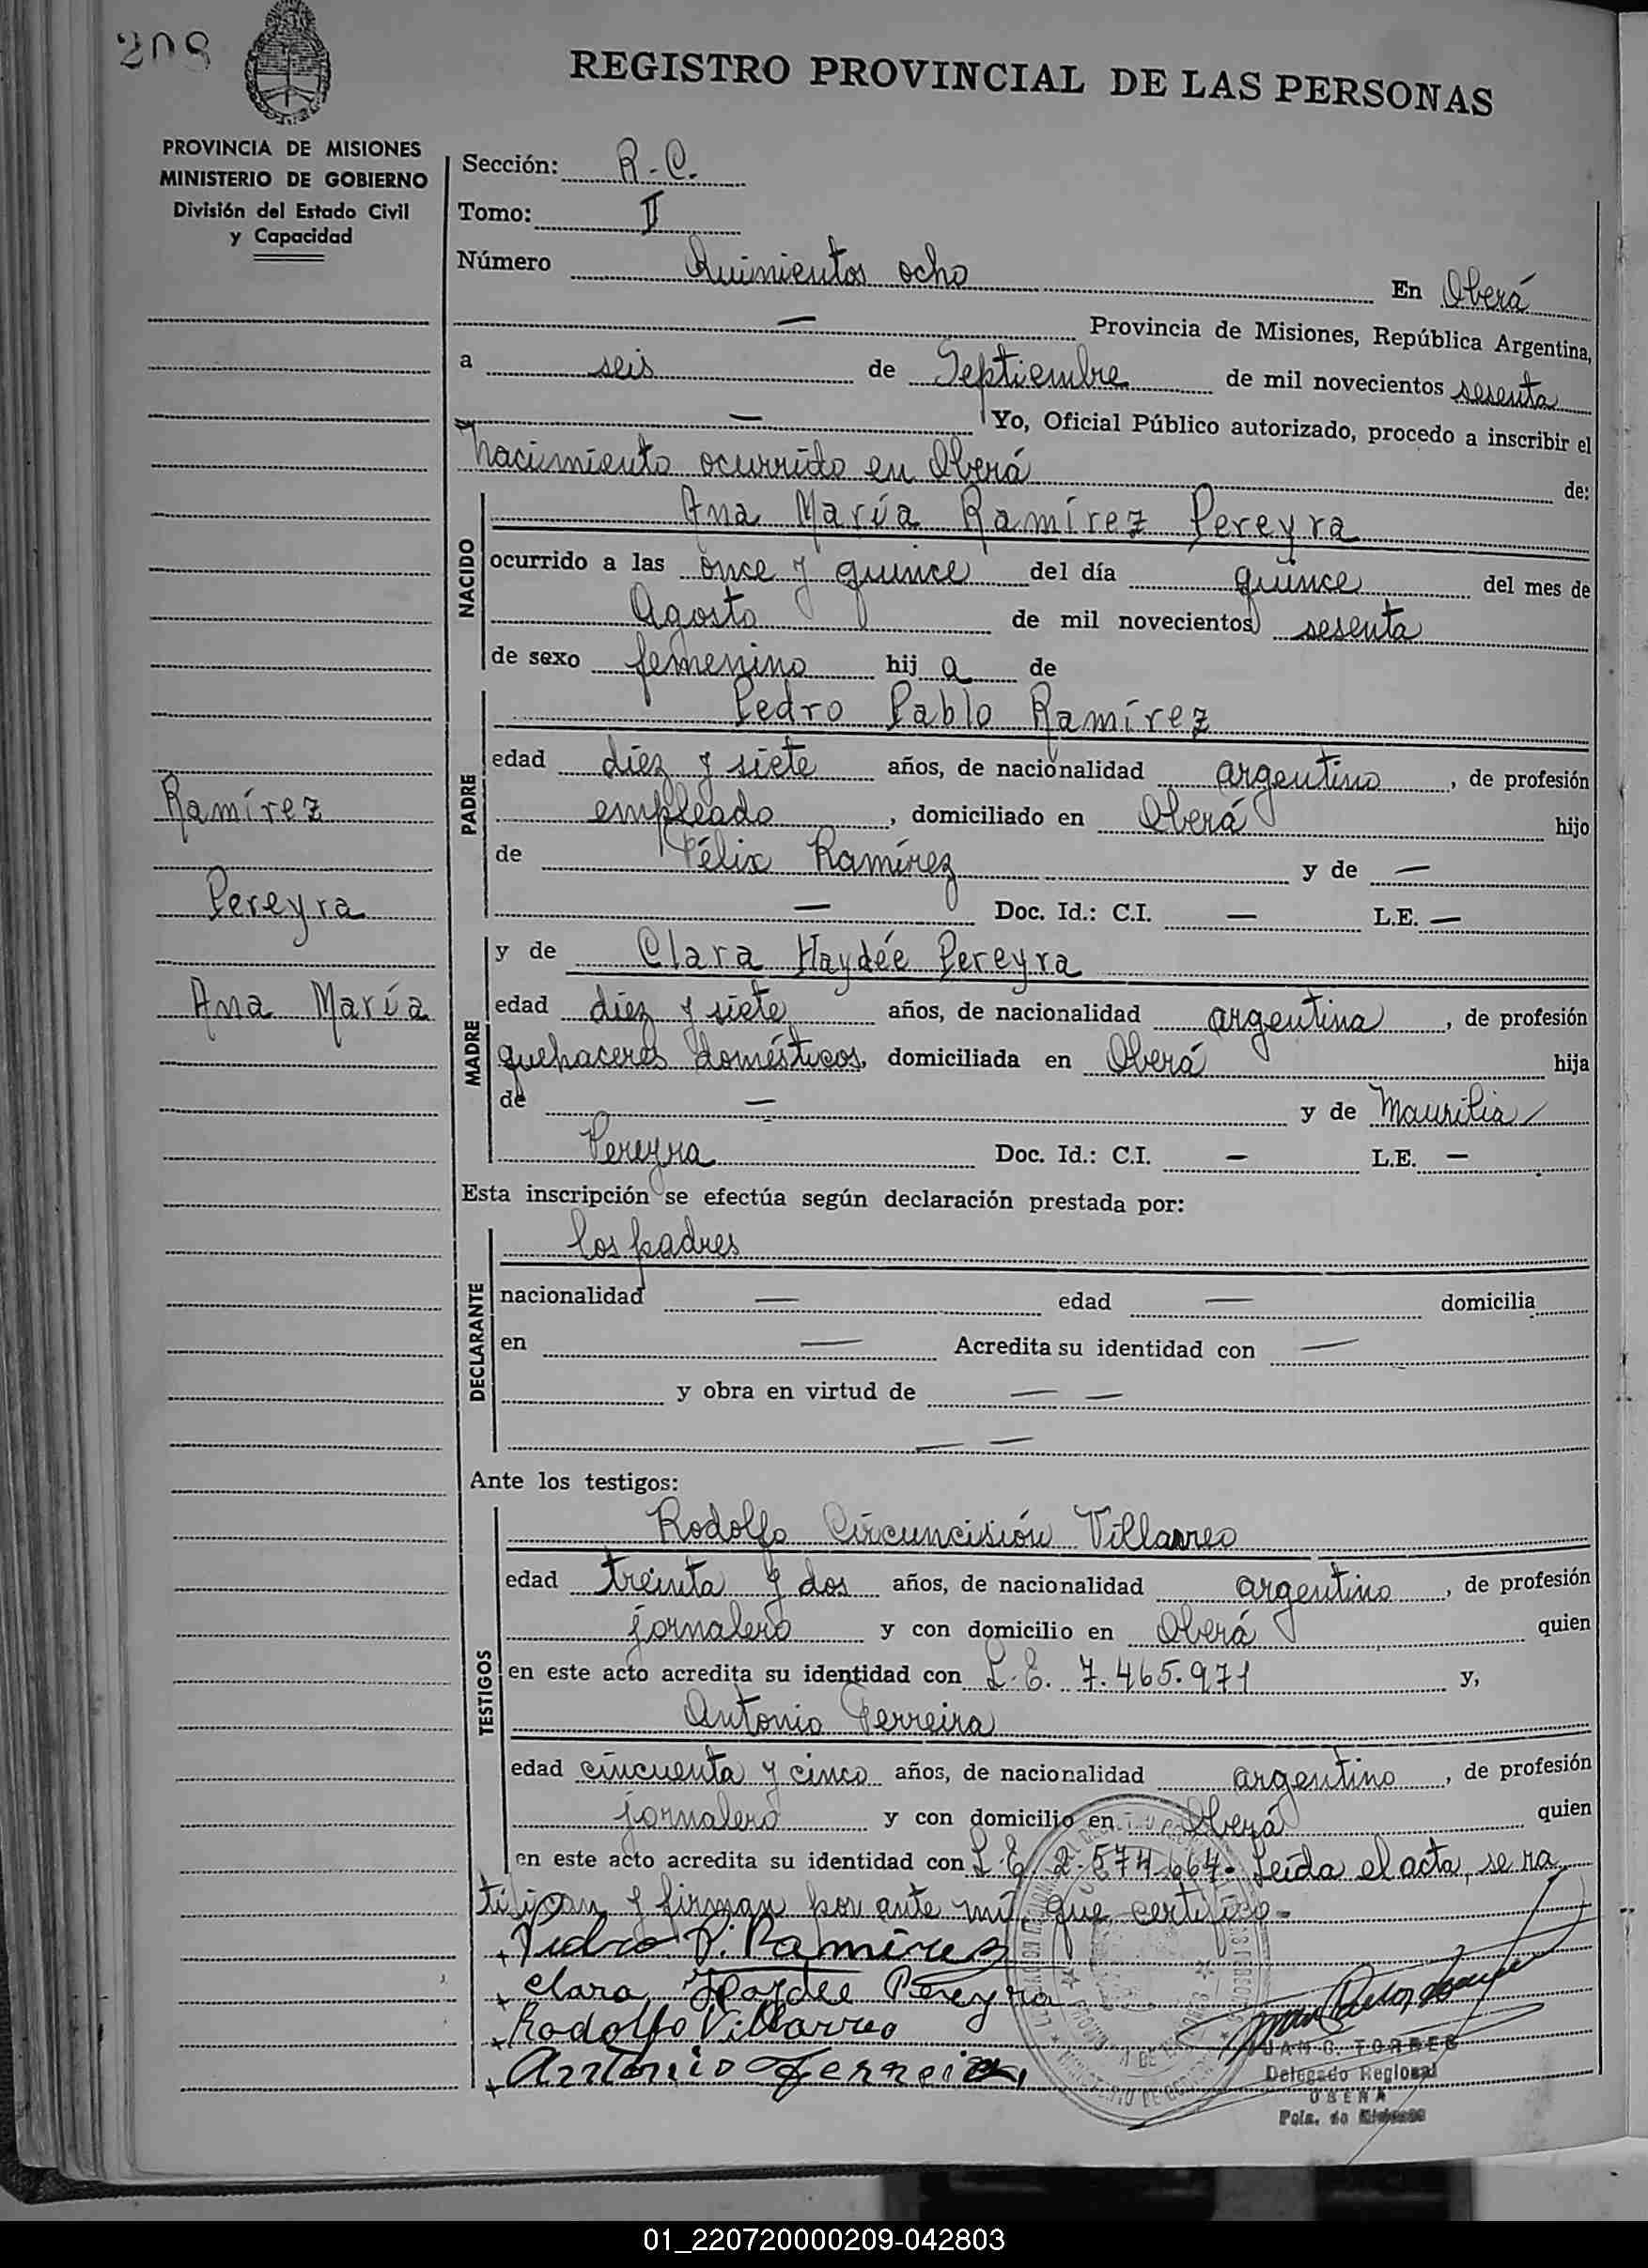 208
REGISTRO PROVINCIAL DE LAS PERSONAS
PROVINCIA DE MISIONES
MINISTERIO DE GOBIERNO
División del Estado Civil
y Capacidad
Sección: R.C.
Tomo: II
Número Quinientos ocho En Oberá
— Provincia de Misiones, República Argentina,
a seis de Septiembre de mil novecientos sesenta
— Yo, Oficial Público autorizado, procedo a inscribir el
nacimiento ocurrido en Oberá de:
NACIDO
Ana María Ramírez Pereyra
ocurrido a las once y quince del día quince del mes de
Agosto de mil novecientos sesenta
de sexo femenino hij a de
PADRE
Pedro Pablo Ramírez
edad diez y siete años, de nacionalidad argentino, de profesión
empleado, domiciliado en Oberá hijo
de Félix Ramírez y de —
— Doc. Id.: C.I. — L.E. —
Ramírez
Pereyra
Ana María
MADRE
y de Clara Haydée Pereyra
edad diez y siete años, de nacionalidad argentina, de profesión
quehaceres domésticos, domiciliada en Oberá hija
de — y de Maurilia
Pereyra Doc. Id.: C.I. — L.E. —
Esta inscripción se efectúa según declaración prestada por:
DECLARANTE
los padres
nacionalidad — edad — domicilia
en — Acredita su identidad con —
y obra en virtud de — —
— —
Ante los testigos:
TESTIGOS
Rodolfo Circuncisión Villarreo
edad treinta y dos años, de nacionalidad argentino, de profesión
jornalero y con domicilio en Oberá quien
en este acto acredita su identidad con L.E. 7.465.971 y,
Antonio Ferreira
edad cincuenta y cinco años, de nacionalidad argentino, de profesión
jornalero y con domicilio en Oberá quien
en este acto acredita su identidad con L.E. 2.574.664. Leída el acta, se ra
tifican y firman por ante mí, que certifico.-
Pedro P. Ramirez
Clara Haydee Pereyra
Rodolfo Villarreo
Antonio Ferreira
JUAN C. TORRES
Delegado Regional
OBERA
Pcia. de Misiones
01_220720000209-042803